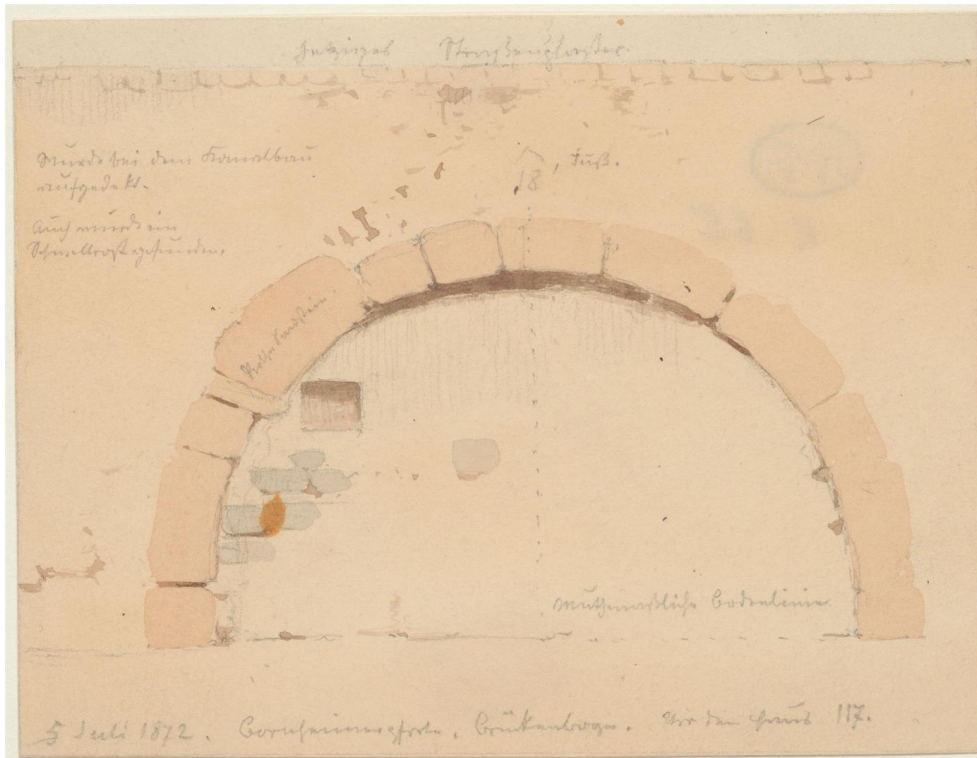 Jetziges Straßenpflaster.
Wurde bei dem Kanalbau
aufgedekt.
Auch wurde ein
gefunden.
18, Fuß.
Rother Sandstein.
Muthmaßliche Bodenlinie
5 Juli 1872. Bornheimerpforte. Brükenboge. Vor dem Haus 117.